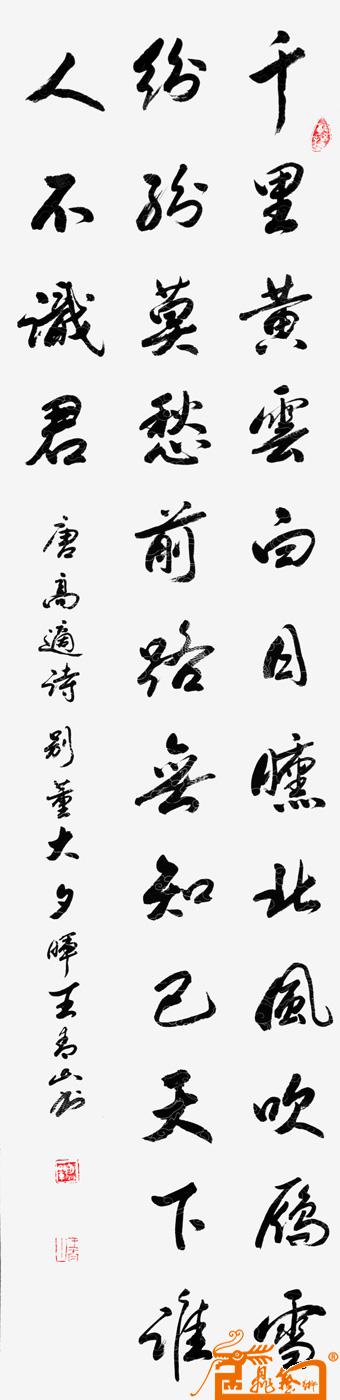 千里黃雲白日曛北風吹雁雪
紛紛莫愁前路無知己天下誰
人不識君
唐高適詩別董大夕暉王青山書